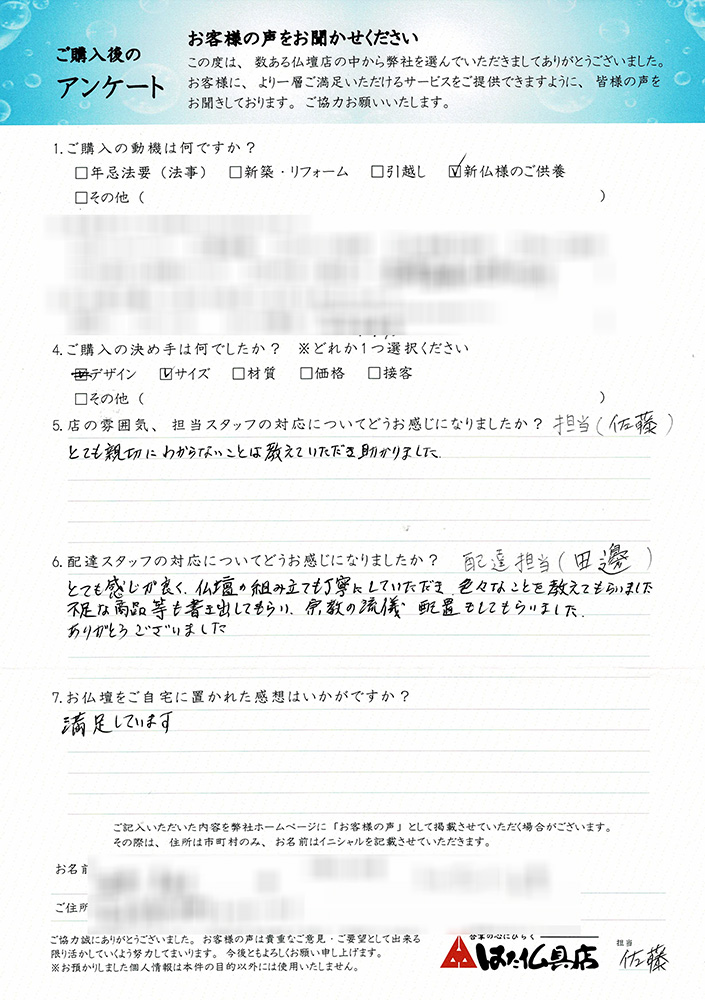 ご購入後の
アンケート
お客様の声をお聞かせください
この度は、数ある仏壇店の中から弊社を選んでいただきましてありがとうございました。
お客様に、より一層ご満足いただけるサービスをご提供できますように、皆様の声を
お聞きしております。ご協力お願いいたします。
1.ご購入の動機は何ですか？
□年忌法要（法事） □新築・リフォーム □引越し ☑新仏様のご供養
□その他（ ）
4.ご購入の決め手は何でしたか？ ※どれか1つ選択ください
☑デザイン ☑サイズ □材質 □価格 □接客
□その他（ ）
5.店の雰囲気、担当スタッフの対応についてどうお感じになりましたか？ 担当(佐藤)
とても親切にわからないことは教えていただき助かりました
6.配達スタッフの対応についてどうお感じになりましたか？ 配達担当(田邊)
とても感じが良く、仏壇の組み立ても丁寧にしていただき、色々なことを教えてもらいました
不足な商品等も書き出してもらい、宗教の流儀 配置もしてもらいました。
ありがとうございました
7.お仏壇をご自宅に置かれた感想はいかがですか？
満足しています
ご記入いただいた内容を弊社ホームページに「お客様の声」として掲載させていただく場合がございます。
その際は、住所は市町村のみ、お名前はイニシャルを記載させていただきます。
お名前
ご住所
ご協力誠にありがとうございました。お客様の声は貴重なご意見・ご要望として出来る
限り活かしていくよう努力してまいります。今後ともよろしくお願い申し上げます。
※お預かりしました個人情報は本件の目的以外には使用いたしません。
合掌の心にひらく
はた仏具店
担当
佐藤